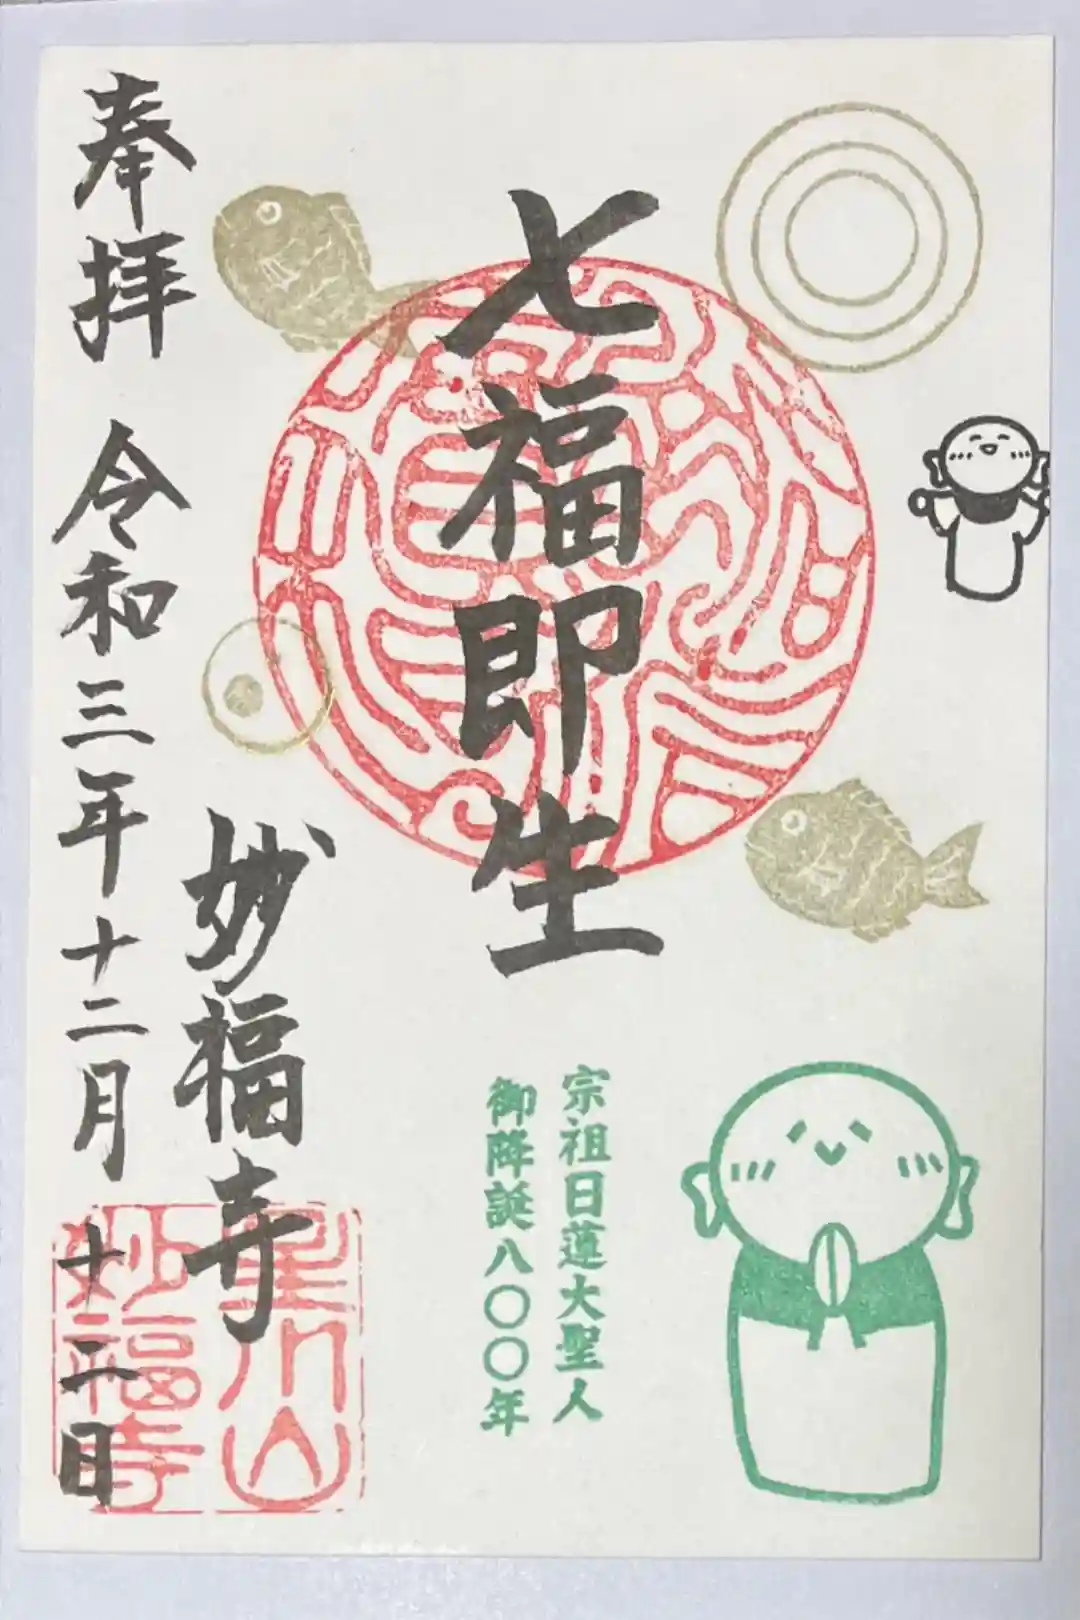 七福即生
宗祖日蓮大聖人
御降誕八〇〇年
妙福寺
奉拝 令和三年十二月十二日
妙福寺